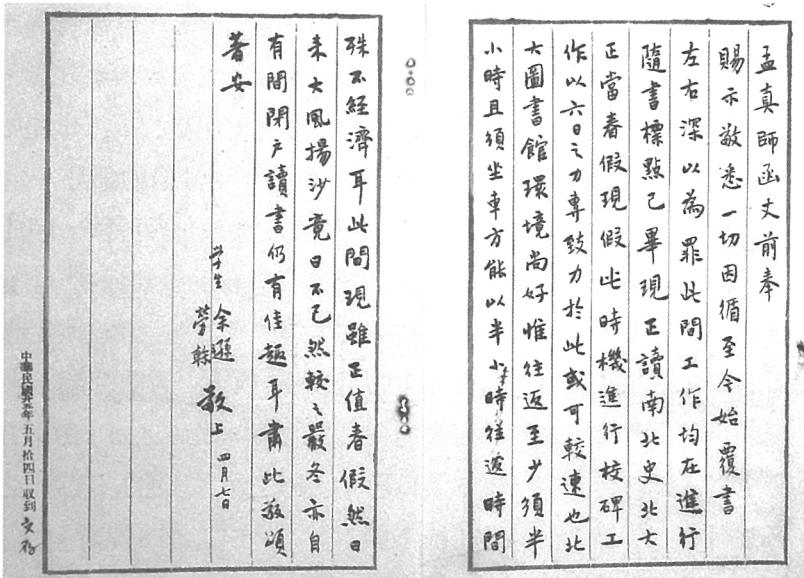 孟真師函丈前奉
賜示敬悉一切因循至今始覆書
左右深以為罪此間工作均在進行
隨書標點已畢現正讀南北史北大
正當春假現假此時機進行校碑工
作以六日之力專致力於此或可較速也北
大圖書館環境尚好惟往返至少須半
小時且須坐車方能以半小時往返時間
殊不經濟耳此間現雖正值春假然日
來大風揚沙竟日不已然較之嚴冬亦自
有間閉户讀書仍有佳趣耳肅此敬頌
著安
學生 余遜
勞榦 敬上 四月七日
中華民國 年五月拾四日收到